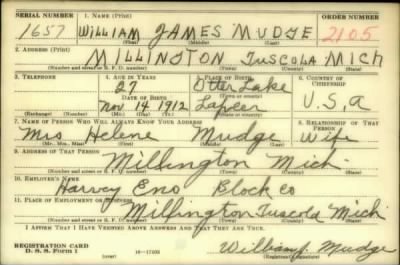 SERIAL NUMBER 1. NAME (Print) ORDER NUMBER
1657 WILLIAM JAMES MUDGE 2105
(First) (Middle) (Last)
2. ADDRESS (Print)
MILLINGTON TUSCOLA MICH
(Number and street or R. F. D. number) (Town) (County) (State)
3. TELEPHONE 4. AGE IN YEARS 5. PLACE OF BIRTH 6. COUNTRY OF CITIZENSHIP
27 Otter Lake
DATE OF BIRTH (Town or county)
Nov 14 1912 Lapeer U.S.A
(Exchange) (Number) (Mo.) (Day) (Yr.) (State or country)
7. NAME OF PERSON WHO WILL ALWAYS KNOW YOUR ADDRESS 8. RELATIONSHIP OF THAT PERSON
Mrs Helene Mudge Wife
(Mr., Mrs., Miss) (First) (Middle) (Last)
9. ADDRESS OF THAT PERSON
Millington Mich
(Number and street or R. F. D. number) (Town) (County) (State)
10. EMPLOYER'S NAME
Harvey Eno Block Co
11. PLACE OF EMPLOYMENT OR BUSINESS
Millington Tuscola Mich
(Number and street or R. F. D. number) (Town) (County) (State)
I AFFIRM THAT I HAVE VERIFIED ABOVE ANSWERS AND THAT THEY ARE TRUE.
REGISTRATION CARD
D. S. S. Form 1 (over) 16—17105 William J. Mudge